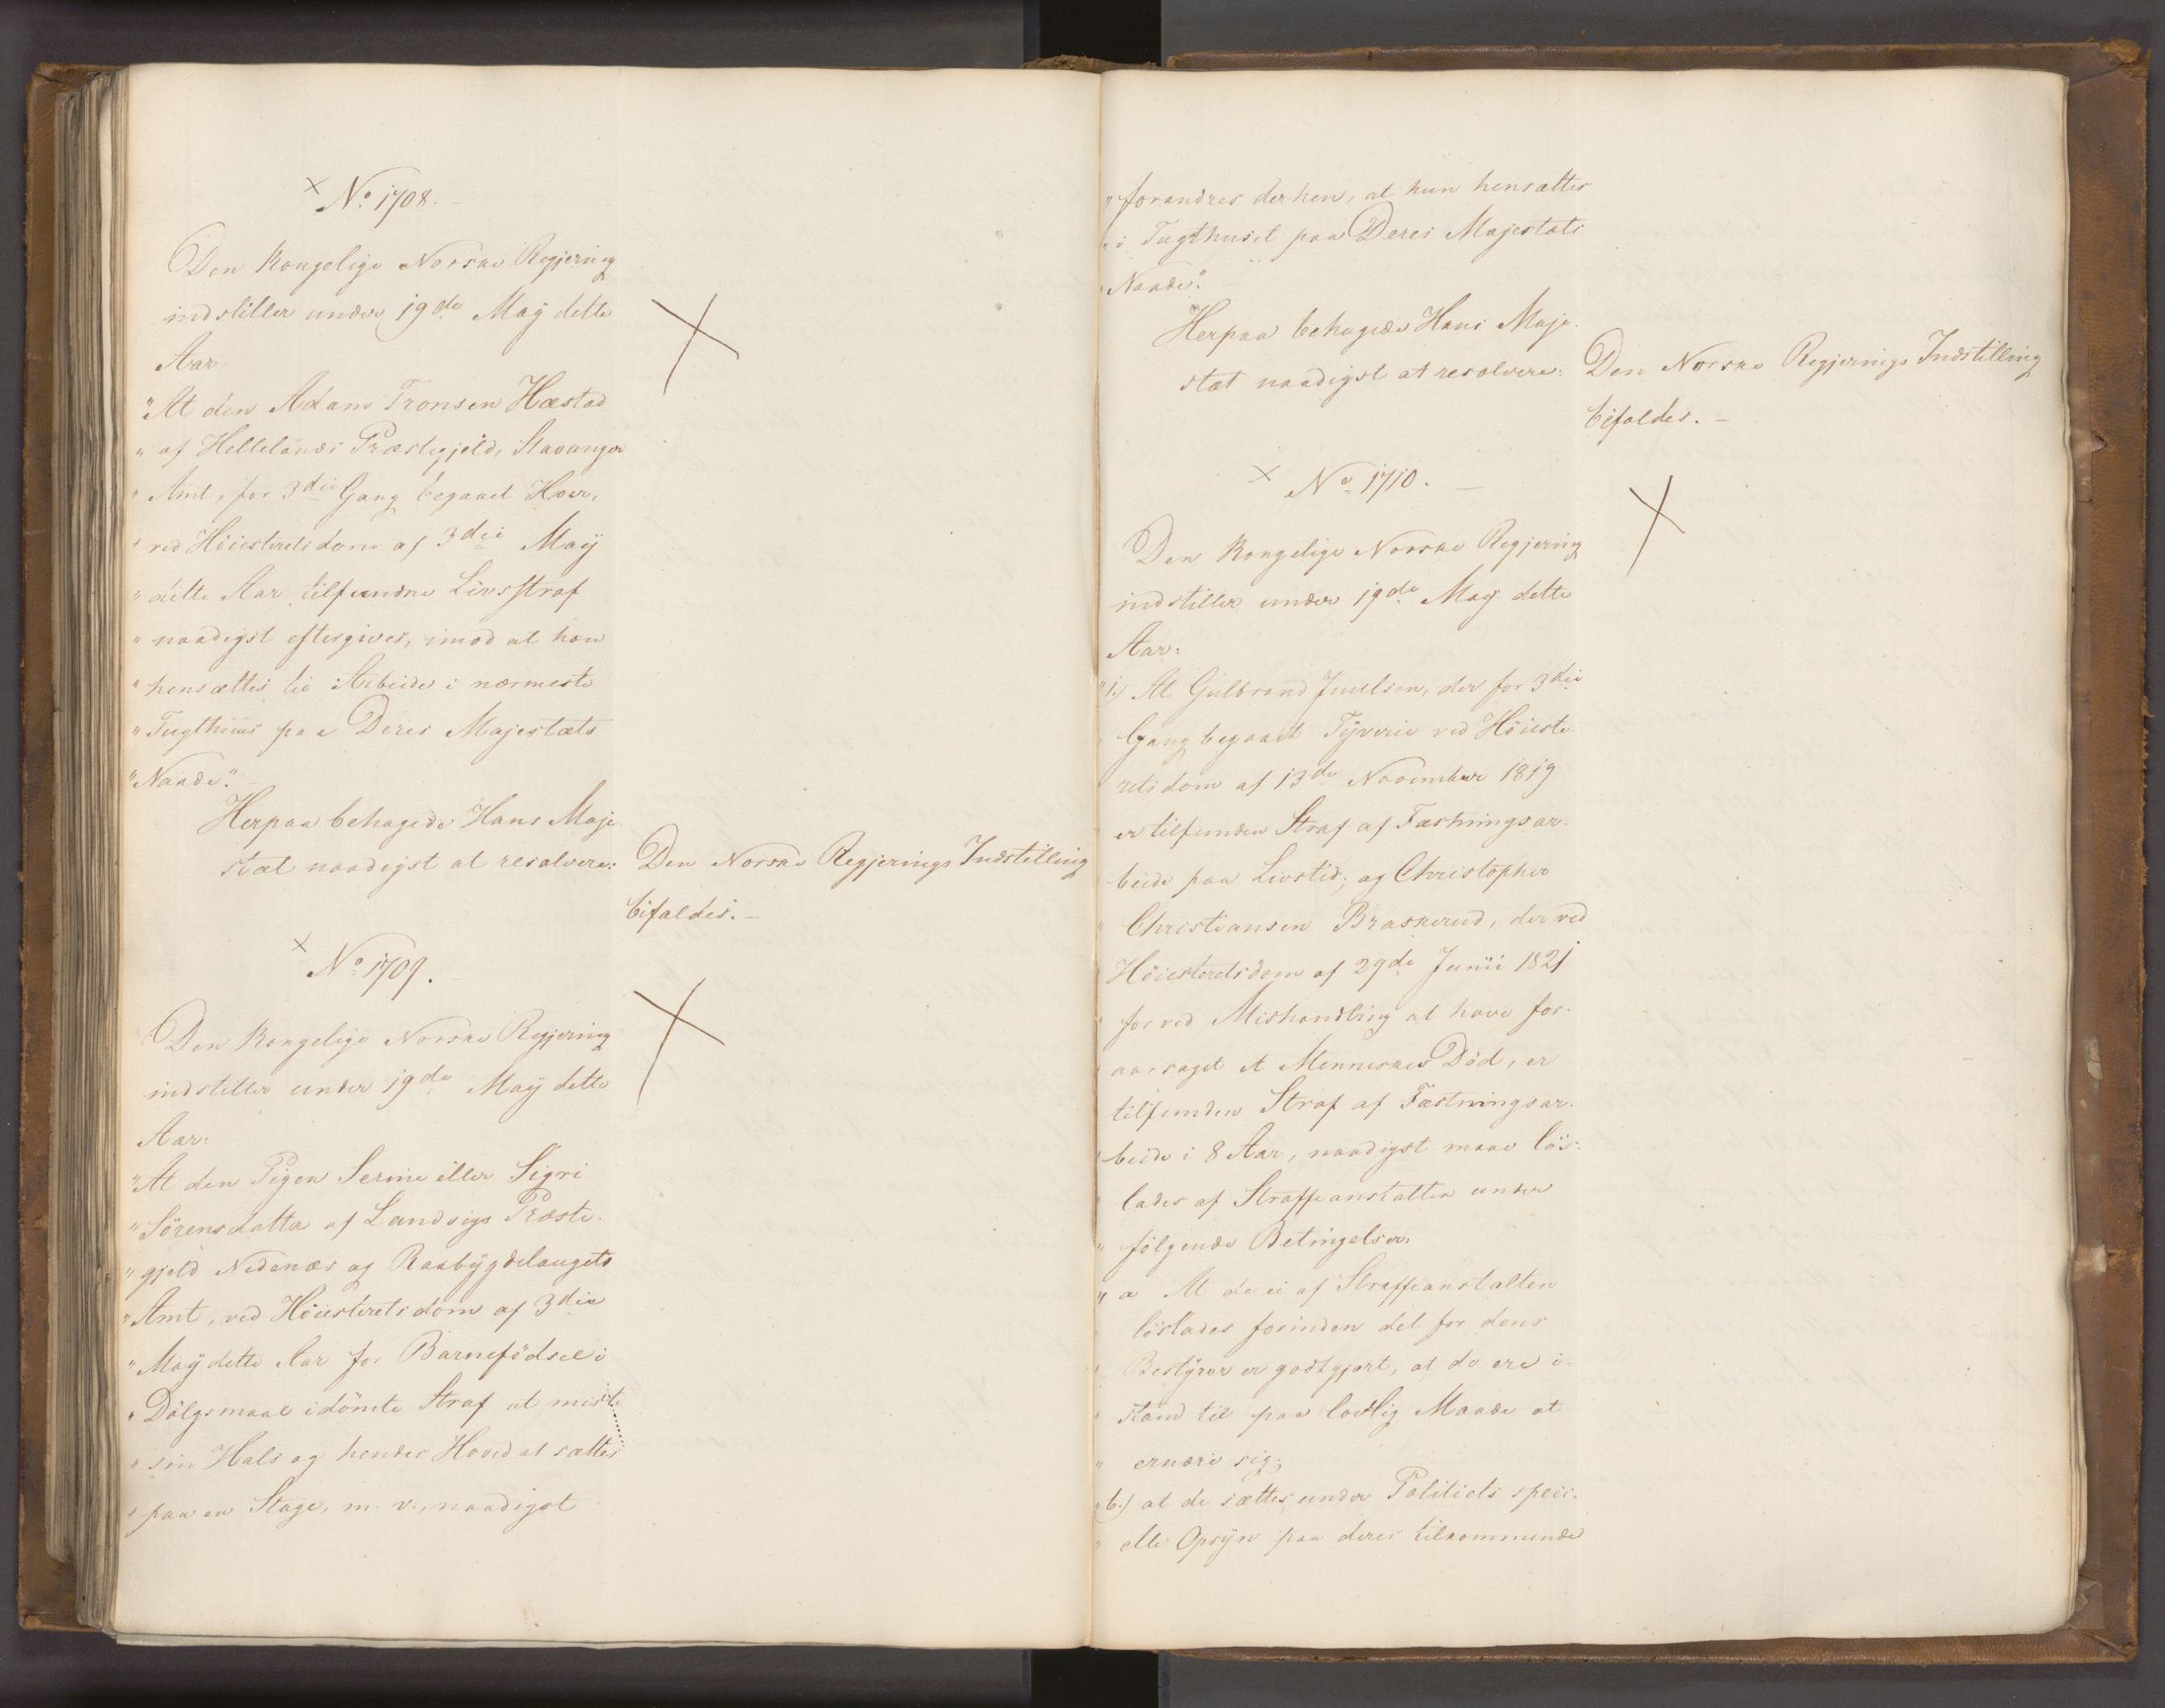 × No 1708. –
Den Kongelige Norske Regjering
indstiller under 19de May dette
Aar
"At den Adam Tronsen Hæstad
" af Hellelands Præstegjeld, Stavanger
" Amt, for 3die Gang begaaet Hoer,
" ved Höiesteretsdom af 3die May
" dette Aar tilfundne Livsstraf
" naadigst eftergives, imod at han
" hensættes til Arbeide i nærmeste
" Tugthuus paa Deres Majestæts
" Naade". –
Herpaa behagede Hans Maje-
stæt naadigst at resolvere:
Den Norske Regjerings Indstilling
bifaldes. –
× No 1709.
Den Kongelige Norske Regjering
indstiller under 19de May dette
Aar:
"At den Pigen Serine eller Sigri
" Sörensdatter af Landvigs Præste-
" gjeld Nedenæs og Raabygdelaugets
" Amt, ved Höiesteretsdom af 3die
" May dette Aar for Barnefödsel i
" Dölgsmaal idömte Straf at miste
" sin Hals og hendes Hoved at sættes
" paa en Stage, m. v., naadigst
" forandres derhen, at hun hensættes
" i Tugthuset paa Deres Majestæts
" Naade".
Herpaa behagede Hans Maje-
stæt naadigst at resolvere:
Den Norske Regjerings Indstilling
bifaldes. –
× No 1710. –
Den Kongelige Norske Regjering
indstiller under 19de May dette
Aar:
"1.) At Gulbrand Juulsen, der for 3die
" Gang begaaet Tyverie ved Höieste-
" retsdom af 13de November 1819
" er tilfunden Straf af Fæstningsar-
" beide paa Livstid; og Christopher
" Christiansen Braskerud, der ved
" Höiesteretsdom af 29de Junii 1821
" for ved Mishandling at have for-
" aarsaget et Menneskes Död, er
" tilfunden Straf af Fæstningsar-
" beide i 8 Aar, naadigst maae lös-
" lades af Straffeanstalten under
" fölgende Betingelser:
" a At de ei af Straffeanstalten
" löslades forinden det for dens
" Bestyrer er godtgjort, at de ere i
" stand til paa lovlig Maade at
" ernære sig;
" b.) at de sættes under Politiets speci-
" elle Opsyn paa deres tilkommende